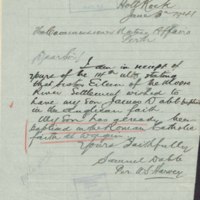 Holt Rock
June 3rd 1941
The Commissioner Native Affairs
Perth
Dear Sir
I am in receipt of
yours of the 14th ult. stating
that Sister Eileen of the Moore
River Settlement wished to
have my son James Dabb baptised
in the Anglican faith
My Son has already been
baptised in the Roman Catholic
faith
Yours Faithfully
Samuel Dabb
Per